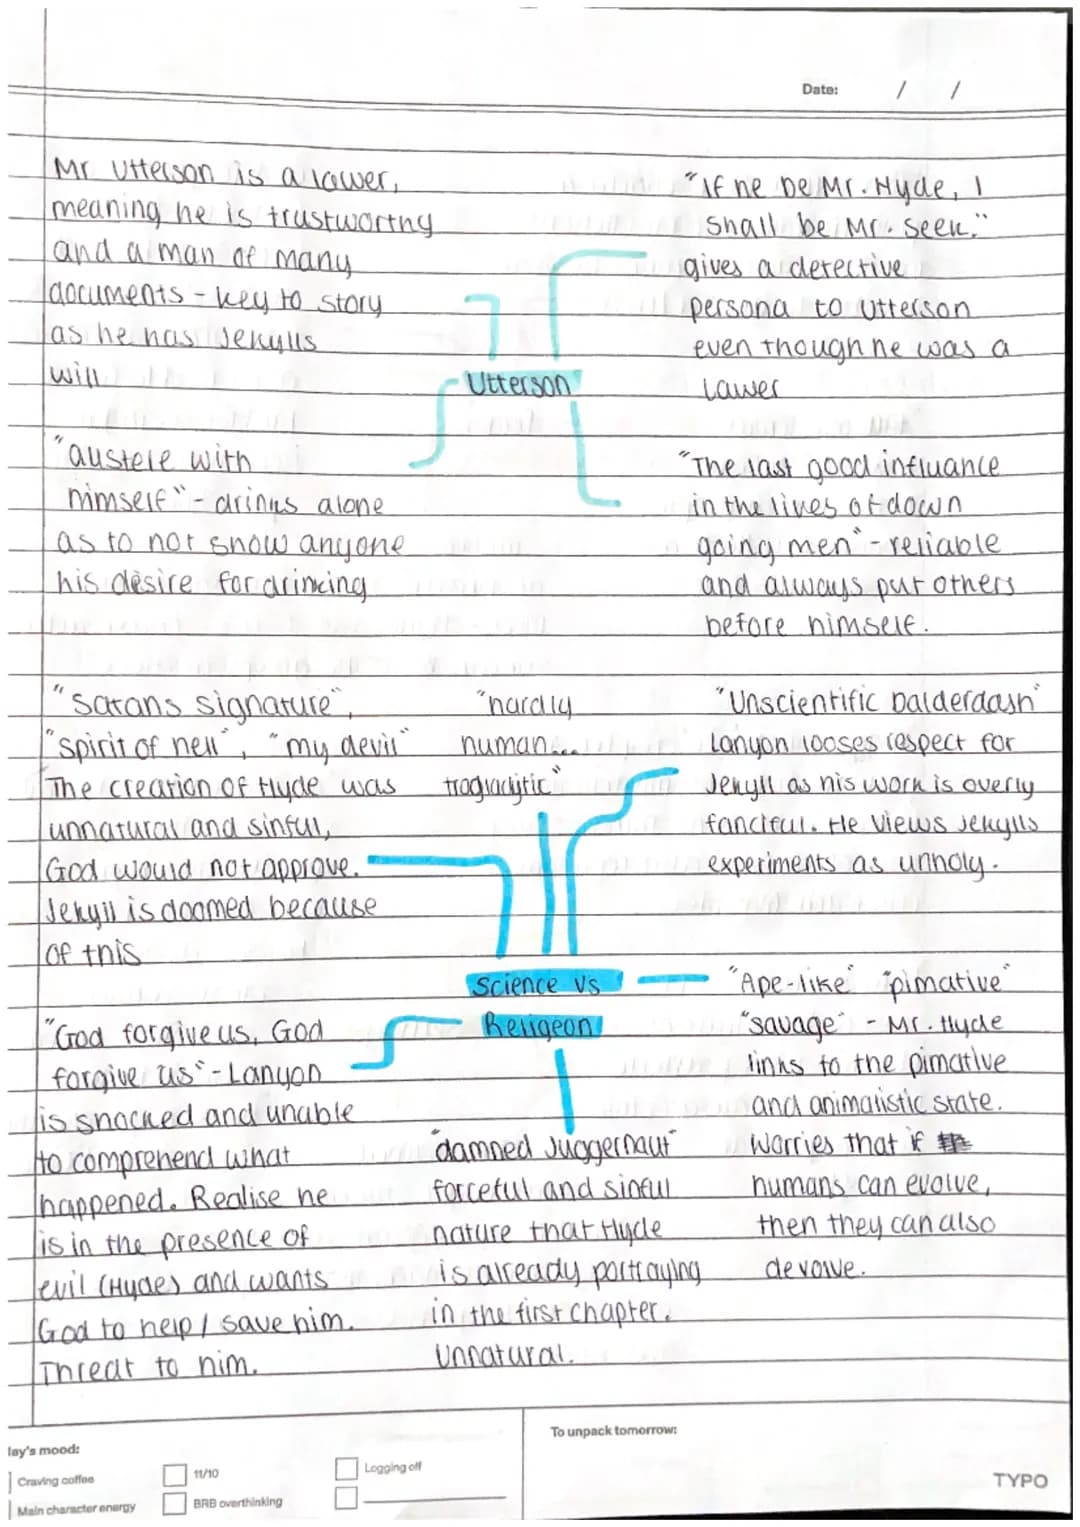 Date: / /
Mr Utterson is a lawer,
meaning he is trustworthy
and a man of many
documents - key to story
as he has Jekylls
will
"If he be Mr. Hyde, I
shall be Mr. Seek."
gives a detective
persona to Utterson
even though he was a
Lawer
Utterson
"austere with
himself" - drinks alone
as to not show anyone
his desire for drinking
"The last good influance
in the lives of down
going men" - reliable
and always put others
before himself.
"Satans signature",
"spirit of hell", "my devil"
The creation of Hyde was
unnatural and sinful,
God would not approve.
Jekyll is doomed because
of this
"hardly
human...
troglodytic"
"Unscientific balderdash"
Lanyon looses respect for
Jekyll as his work is overly
fanciful. He views Jekylls
experiments as unholy.
Science vs
Religeon
"God forgive us, God
forgive us" - Lanyon
is shocked and unable
to comprehend what
happened. Realise he
is in the presence of
evil (Hydes) and wants
God to help / save him.
Threat to him.
"damned Juggernaut"
forceful and sinful
nature that Hyde
is already portraying
in the first chapter.
Unnatural.
"Ape-like" "pimative"
"savage" - Mr. Hyde
links to the pimative
and animalistic state.
Worries that if
humans can evolve,
then they can also
devolve.
lay's mood:
Craving coffee
Main character energy
11/10
BRB overthinking
Logging off
To unpack tomorrow:
TYPO